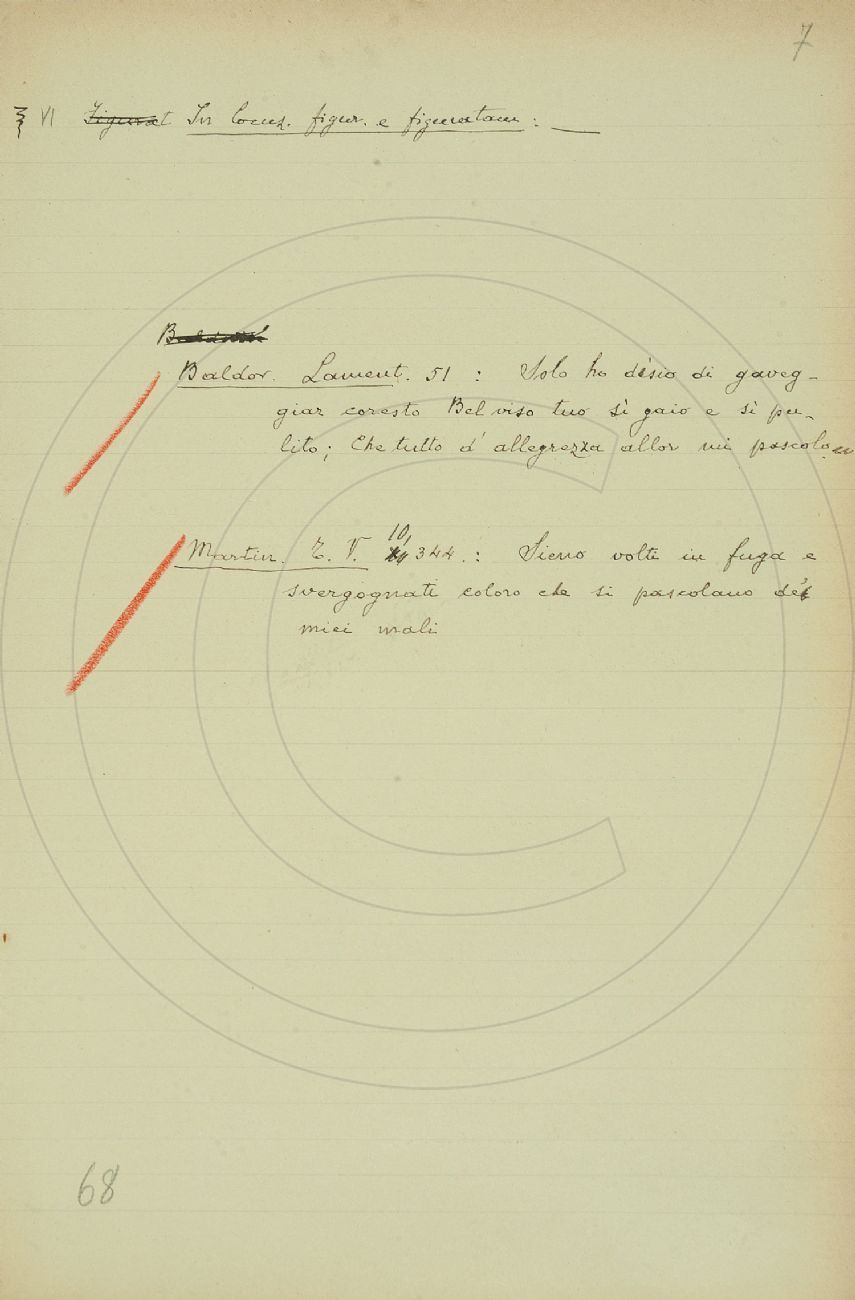 7
§ VI Figurat In locuz. figur. e figuratam: —
Baldov
Baldov. Lament. 51 : Solo ho désio di gaveg-
giar coresto Bel viso tuo sì gaio e sì pu-
lito; Che tutto d'allegrezza allor mi pascolo.
Martin. T. V. 10, 344. : Sieno volti in fuga e
svergognati coloro che si pascolano de'
miei mali
68